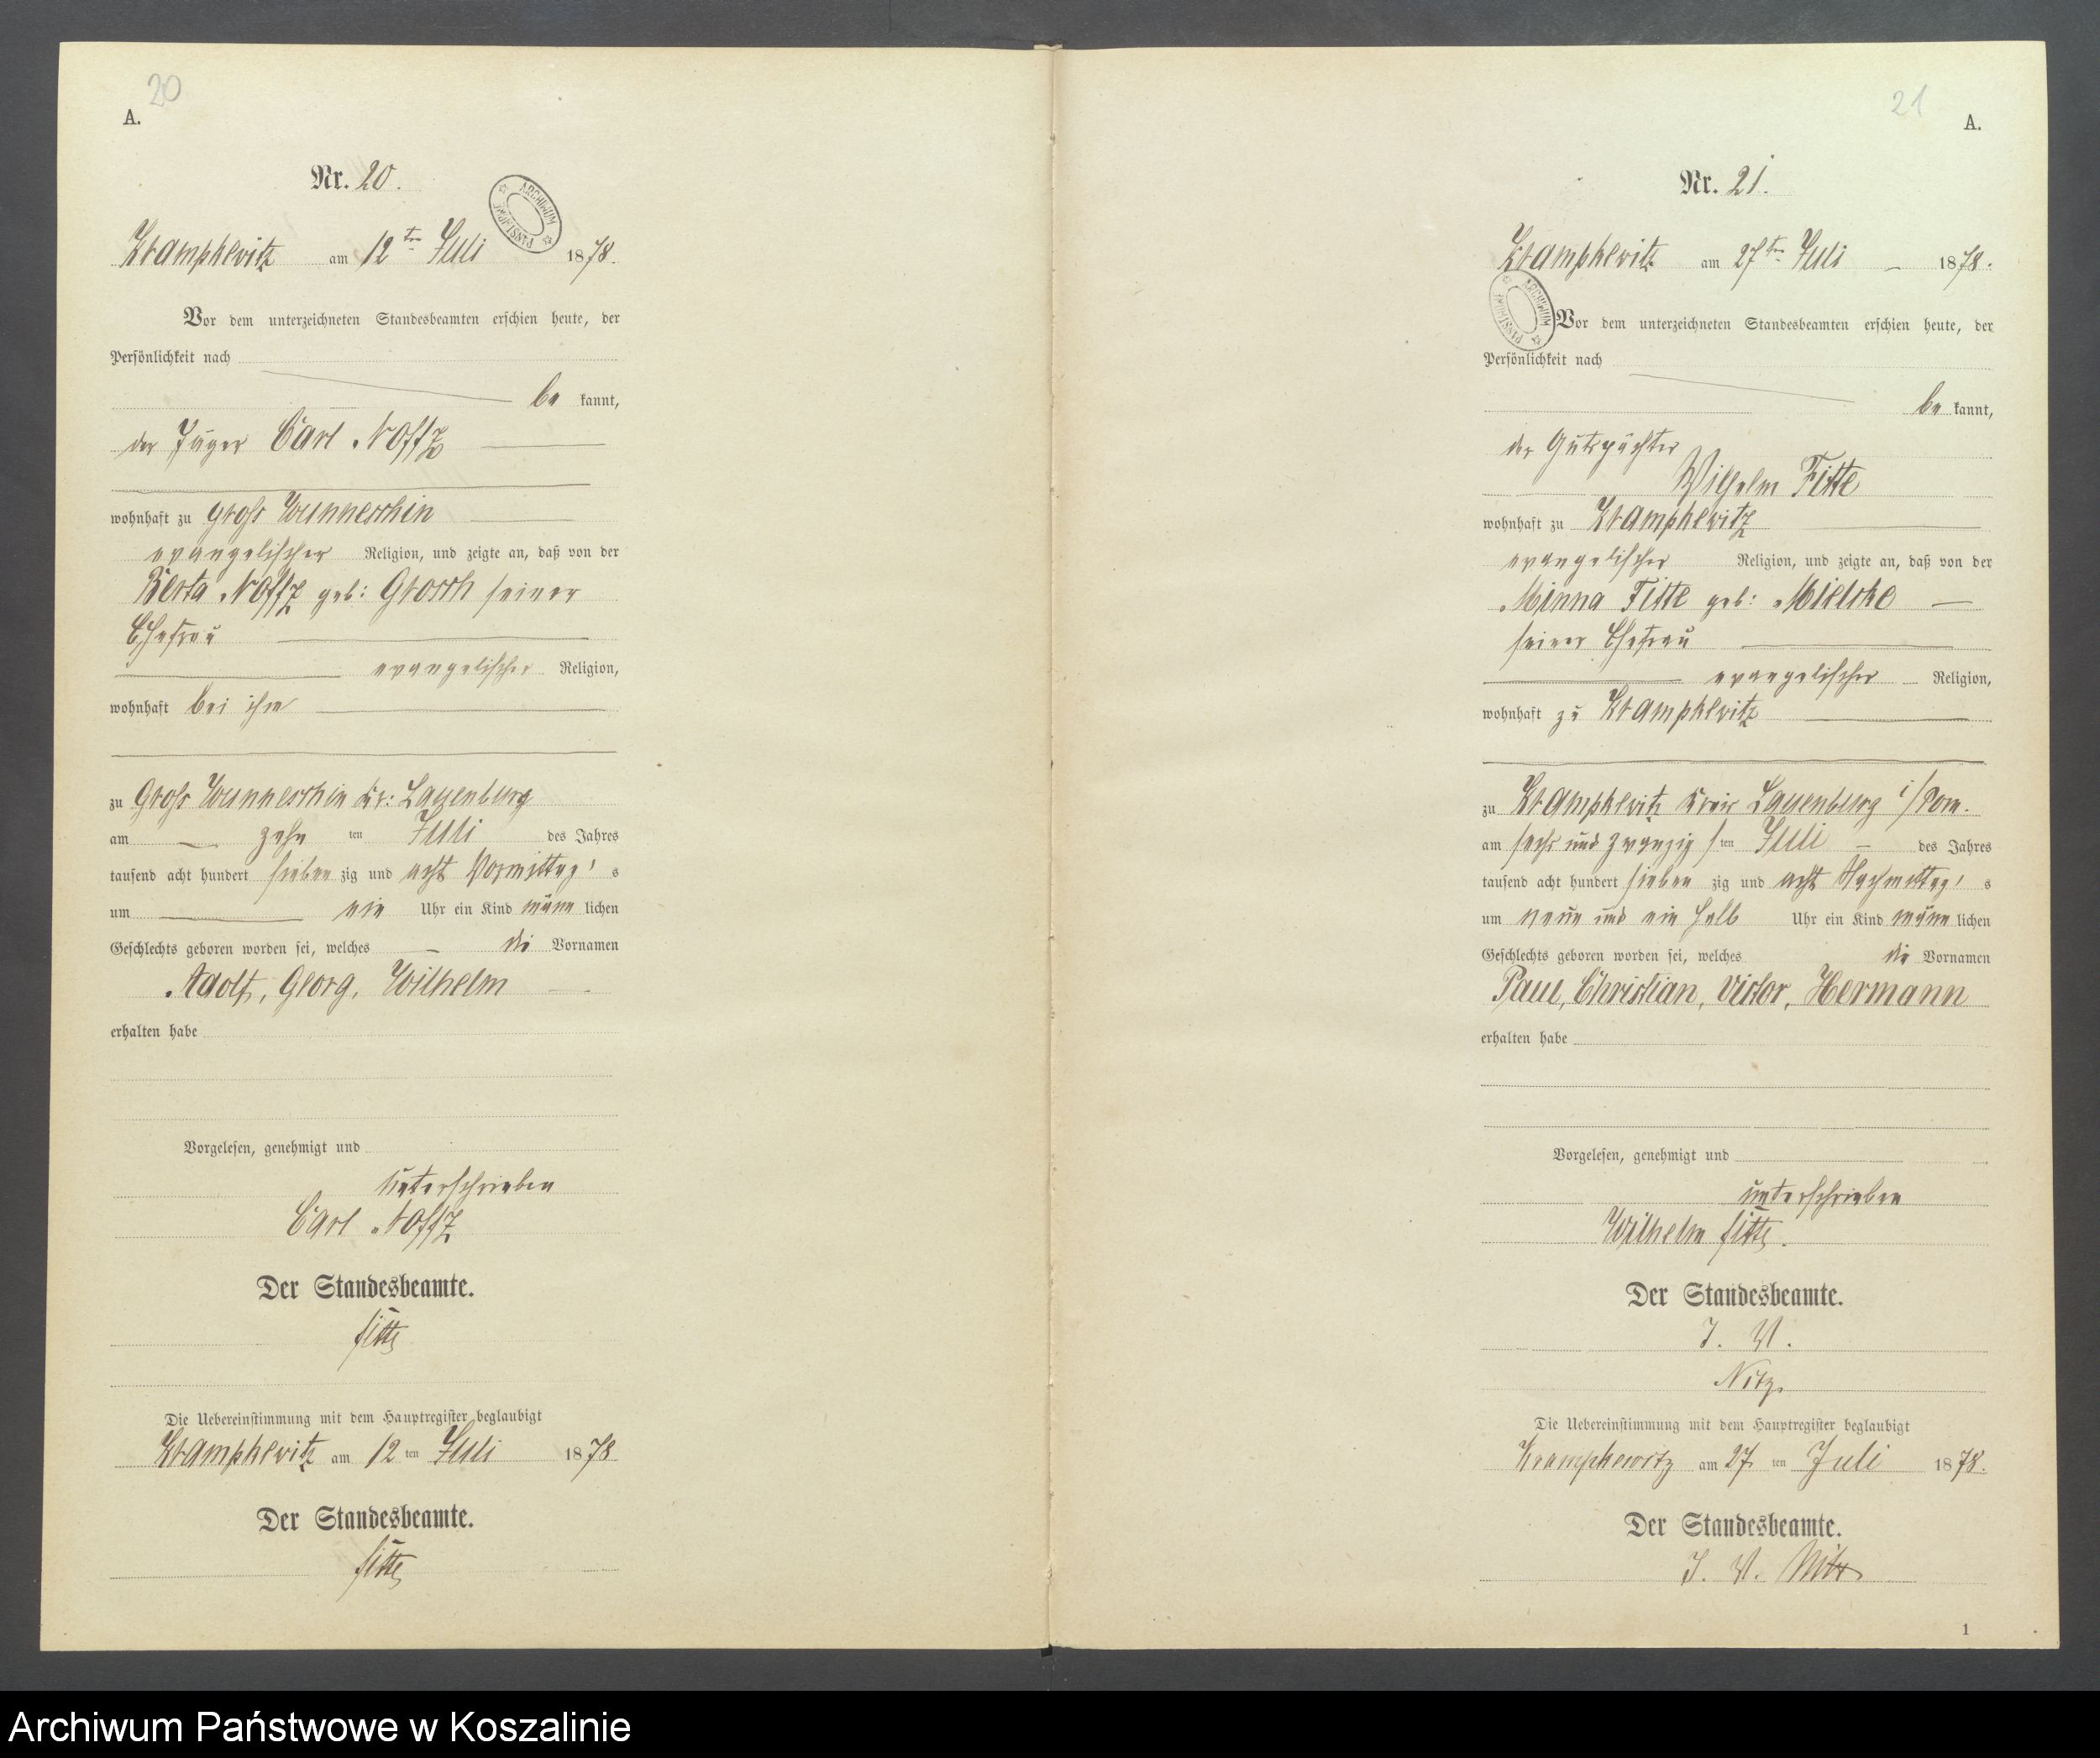 20
A.
Nr. 20.
ARCHIWUM PAŃSTWOWE
Krampkewitz am 12ten Juli 1878.
Vor dem unterzeichneten Standesbeamten erschien heute, der
Persönlichkeit nach
be kannt,
der Jäger Carl Noffz
wohnhaft zu Gross Wunneschin
evangelischer Religion, und zeigte an, daß von der
Berta Noffz geb: Grosch seiner
Ehefrau
evangelischer Religion,
wohnhaft bei ihm
zu Gross Wunneschin Kr: Lauenburg
am zehn ten Juli des Jahres
tausend acht hundert sieben zig und acht Vormittag's
um ein Uhr ein Kind männ lichen
Geschlechts geboren worden sei, welches die Vornamen
Adolf, Georg, Wilhelm
erhalten habe
Vorgelesen, genehmigt und
unterschrieben
Carl Noffz
Der Standesbeamte.
Fitte
Die Uebereinstimmung mit dem Hauptregister beglaubigt
Krampkewitz am 12 ten Juli 1878
Der Standesbeamte.
Fitte
21
A.
Nr. 21.
Krampkewitz am 27ten Juli 1878.
ARCHIWUM PAŃSTWOWE
Vor dem unterzeichneten Standesbeamten erschien heute, der
Persönlichkeit nach
be kannt,
der Gutspächter
Wilhelm Fitte
wohnhaft zu Krampkewitz
evangelischer Religion, und zeigte an, daß von der
Minna Fitte geb: Mielcke
seiner Ehefrau
evangelischer Religion,
wohnhaft zu Krampkewitz
zu Krampkewitz Kreis Lauenburg i/Pom.
am sechs und zwanzig s ten Juli des Jahres
tausend acht hundert sieben zig und acht Nachmittag's
um neun und ein halb Uhr ein Kind männ lichen
Geschlechts geboren worden sei, welches die Vornamen
Paul, Christian, Victor, Hermann
erhalten habe
Vorgelesen, genehmigt und
unterschrieben
Wilhelm Fitte.
Der Standesbeamte.
J. V.
Nitz
Die Uebereinstimmung mit dem Hauptregister beglaubigt
Krampkewitz am 27 ten Juli 1878.
Der Standesbeamte.
J. V. Nitz
1
Archiwum Państwowe w Koszalinie